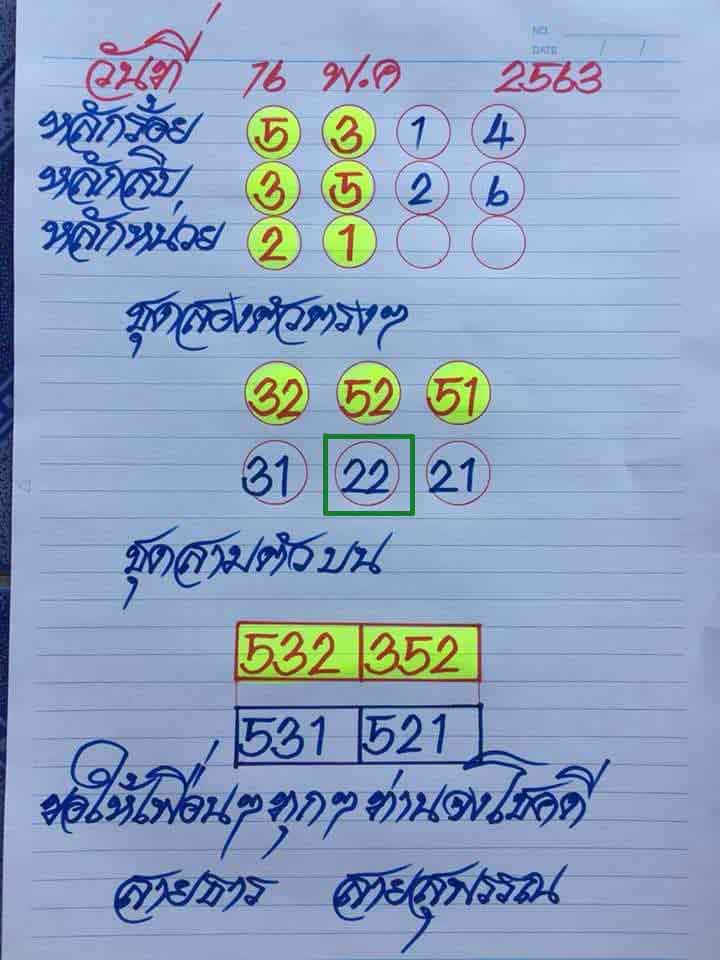 NO.
DATE / /
วันที่ 16 พ.ค 2563
หลักร้อย 5 3 1 4
หลักสิบ 3 5 2 6
หลักหน่วย 2 1
ชุดสองตัวตรงๆ
32 52 51
31 22 21
ชุดสามตัวบน
532 352
531 521
ขอให้เพื่อนๆทุกๆท่านจงโชคดี
สายธาร สายสุพรรณ